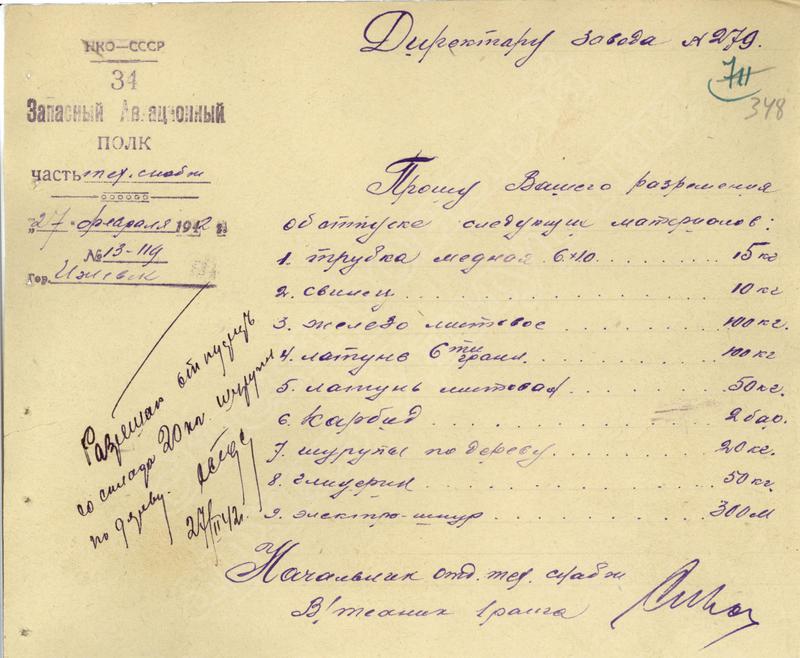 НКО—СССР
34
Запасный Авиационный
ПОЛК
часть тех. снабж
"27" февраля 1942 г.
№ 13-119
гор. Ижевск
Директару завода № 279.
7/II
348
Прошу Вашего разрешения
об отпуске следующих материалов:
1. трубка медная 6х10 15 кг
2. свинец 10 кг
3. железо листовое 100 кг.
4. латунь 6ти гранн. 100 кг
5. латунь листовая 50 кг.
6. Карбид 2 бар.
7. шурупы по дереву 20 кг.
8. глицерин 50 кг.
9. электро-шнур 300 м
Разрешаю отпустить
со склада 20 кг. шурупы
по дереву.
27/II 42г.
Начальник отд. тех. снабж
В/техник 1 ранга